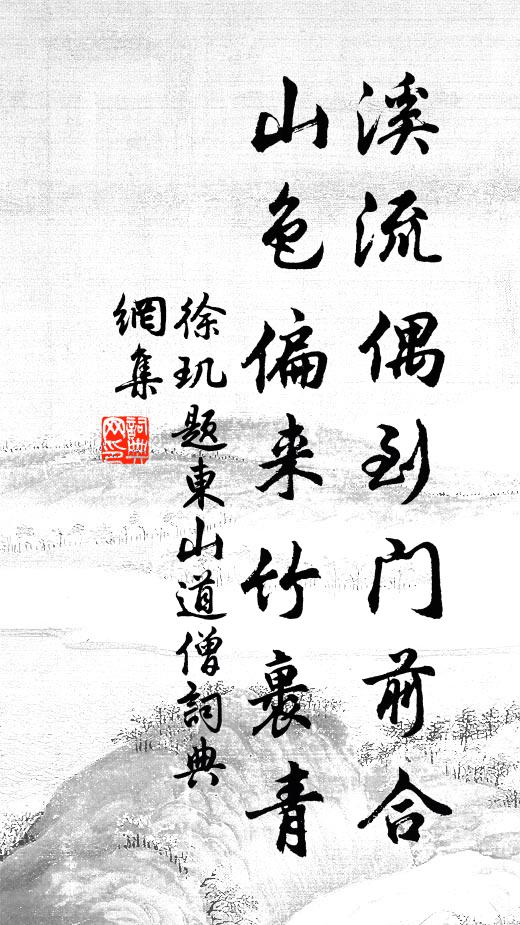 溪流偶到门前合
山色偏来竹裹青
徐玑题東山道僧詞典
網集
詞典
网印